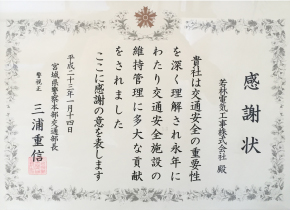 感謝状
若林電気工事株式会社 殿
貴社は交通安全の重要性
を深く理解され永年に
わたり交通安全施設の
維持管理に多大な貢献
をされました
ここに感謝の意を表します
平成二十三年一月十四日
宮城県警察本部交通部長
警視正 三浦重信